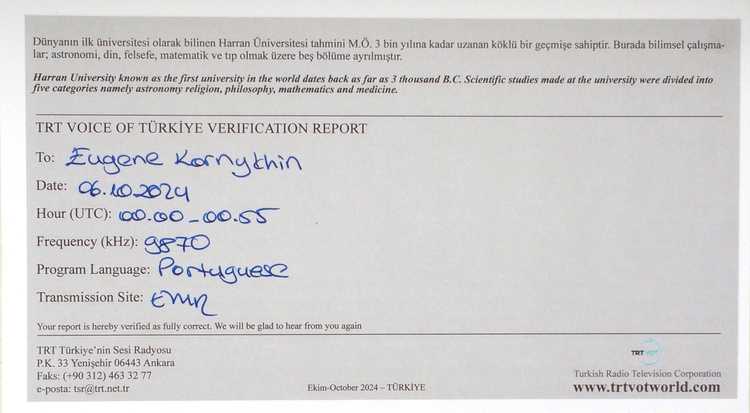 Dünyanın ilk üniversitesi olarak bilinen Harran Üniversitesi tahmini M.Ö. 3 bin yılına kadar uzanan köklü bir geçmişe sahiptir. Burada bilimsel çalışma-
lar; astronomi, din, felsefe, matematik ve tıp olmak üzere beş bölüme ayrılmıştır.
Harran University known as the first university in the world dates back as far as 3 thousand B.C. Scientific studies made at the university were divided into
five categories namely astronomy religion, philosophy, mathematics and medicine.
TRT VOICE OF TÜRKİYE VERIFICATION REPORT
To: Eugene Kornykhin
Date: 06.10.2024
Hour (UTC): 00.00-00.55
Frequency (kHz): 9870
Program Language: Portuguese
Transmission Site: EMR
Your report is hereby verified as fully correct. We will be glad to hear from you again
TRT Türkiye'nin Sesi Radyosu
P.K. 33 Yenişehir 06443 Ankara
Faks: (+90 312) 463 32 77
e-posta: tsr@trt.net.tr
Ekim-October 2024 – TÜRKİYE
TRT VOT
Turkish Radio Television Corporation
www.trtvotworld.com